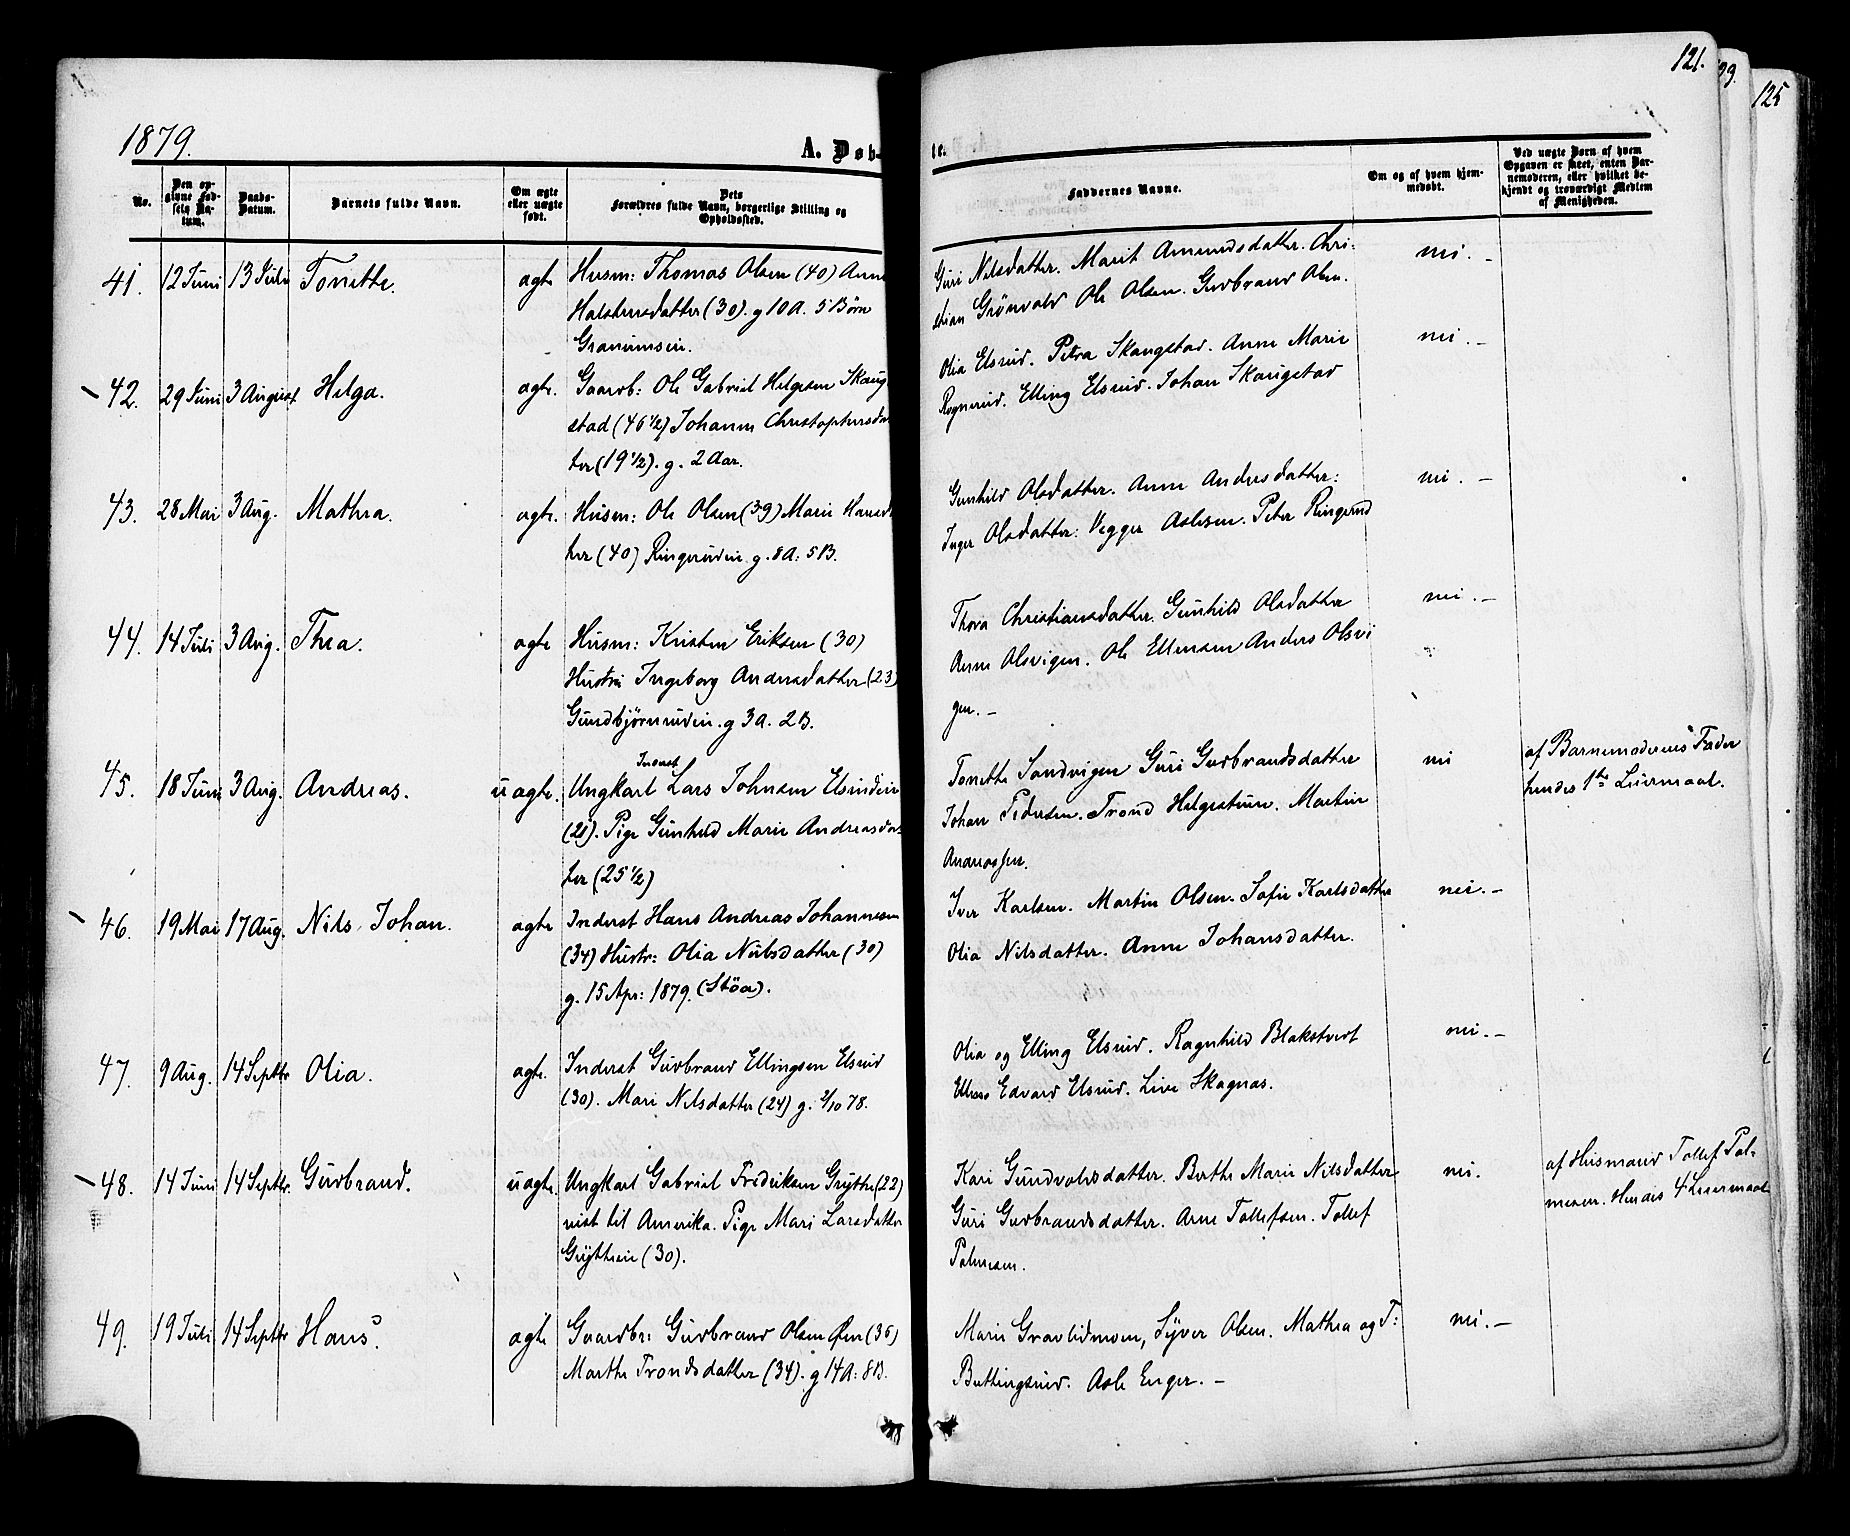 121.
99.
125
1879.
A. Døb-
te.
No.
Den op-
givne Fød-
sels Da-
tum.
Daabs-
Datum.
Barnets fulde Navn.
Om ægte
eller uægte
født.
Dets
Forældres fulde Navn, borgerlige Stilling og
Opholdssted.
Faddernes Navne.
Om og af hvem hjem-
medøbt.
Ved uægte Børn af hvem
Opgaven er skeet, enten Bar-
nemoderen, eller hvilket be-
kjendt og troværdigt Medlem
af Menigheden.
41. 12 Juni 13 Juli Tonette. ægte Husm: Thomas Olsen (40) Anne
Halstensdatter (30). g 10 A. 5 Børn
Granumsei.
Guri Nilsdatter. Marit Amundsdatter. Chri-
stian Grönvold Ole Olsen. Gudbrand Olsen.
nei. -
42. 29 Juni 3 August. Helga. ægte. Gaardb: Ole Gabriel Helgesen Skaug
stad (46 1/2) Johanne Christophersdat
ter (19 1/2). g. 2 Aar.
Olia Elsrud. Petra Skaugstad. Anne Marie
Rognerud. Elling Elsrud. Johan Skaugstad
nei. -
43. 28 Mai 3 Aug. Mathea. ægte. Husm: Ole Olsen (39) Marie Hansdt
ter (40) Ringerudei. g. 8 A: 5 B.
Gunhild Olsdatter. Anne Andersdatter:
Inger Olsdatter: Vegger Aslesen. Peter Ringerud
nei. -
44. 14 Juli 3 Aug. Thea. ægte Husm: Kristen Eriksen (30)
Hustru Ingeborg Andersdatter (23)
Gundbjørnrudei. g 3 A. 2 B.
Thora Christiansdatter. Gunhild Olsdatter
Anne Olsvigen. Ole Ellensen Anders Olsvi
gen. -
nei. -
45. 18 Juni 3 Aug. Andreas. uægte. Ungkarl Lars Johnsen Elsrudeie
(21). Pige Gunhild Marie Andreasdat
ter (25 1/2)
Tonette Sandvigen Guri Gudbrandsdatter
Johan Pedersen. Trond Helgestuen. Martin
Andreassen.
nei
af Barnemoderens Fader
hendes 1ste Leiermaal.
46. 19 Mai 17 Aug. Nils Johan. ægte Inderst Hans Andreas Johannesen
(34) Hustr: Olia Nilsdatter (30)
g. 15 Apr: 1879. (Støa).
Iver Karlsen. Martin Olsen. Sofie Karlsdatter
Olia Nilsdatter. Anne Johansdatter.
nei. -
47. 9 Aug. 14 Septbr Olia. ægte. Inderst Gudbrand Ellingsen Elsrud
(30). Mari Nilsdatter (24) g. 2/10 78.
Olia og Elling Elsrud. Ragnhild Blakstvedt
Edvard Elsrud. Live Skagnæs.
nei. -
48. 14 Juni 14 Septbr. Gudbrand. uægte. Ungkarl Gabriel Fredriksen Grytte (22)
reist til Amerika. Pige Mari Larsdatter
Grytteeie (30).
Kari Gundvaldsdatter. Berthe Marie Nilsdatter
Guri Gudbrandsdatter. Arne Tollefsen. Tollef
Palmesen.
nei.
af Husmand Tollef Pal-
mesen. Hendes 4de Leiermaal
49. 19 Juli 14 Septbr Hans. ægte Gaardbr: Gudbrand Olsen Øen (36)
Marthe Trondsdatter (34). g 14 A: 8 B.
Marie Gravlidmoen, Syver Olsen. Mathea og T:
Buttingsrud. Asle Enger. -
nei. -